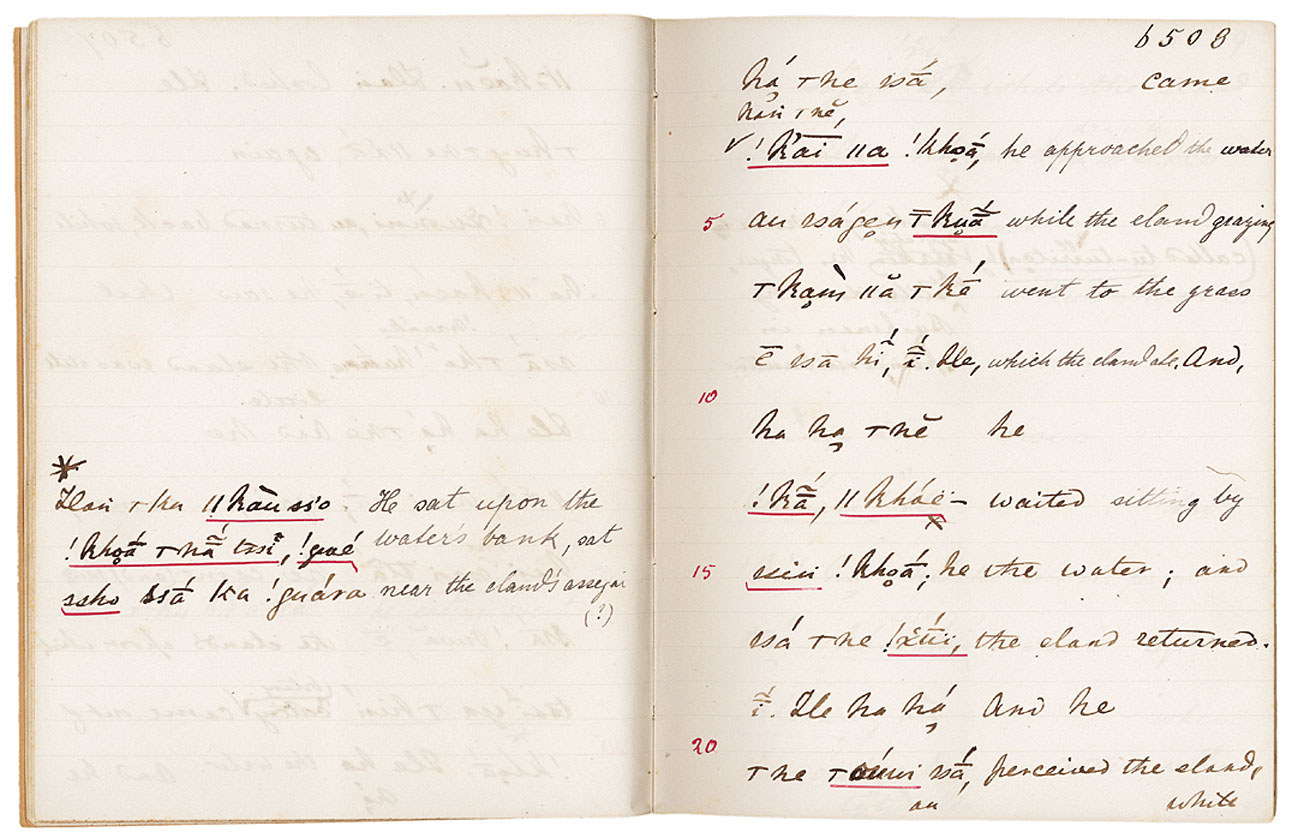 *
Han ⊤ka ǁkàu ss'o. He sat upon the
!khọá ⊤nã́ tssĩ́, !gwé water's bank, sat
ssho ssá ka !guára near the eland's assegai
(?)
6508
hạ́ ⊤ne ssā́, came
hạn ⊤nĕ,
✓ !k'ā́i ǁa !khọá, he approached the water
5 au sságẹn ⊤kụã́ while the eland grazing
⊤kạ̀m ǁă ⊤ké went to the grass
ē ssā hĩ́, ĩ́. He, which the eland ate. And,
10
ha hạ ⊤nĕ he
!kã́, ǁkhóë – waited sitting by
x
15 ssin !khọá; he the water; and
ssá ⊤ne !xū́i, the eland returned.
ĩ́. He ha hạ́ And he
20
⊤ne ⊤óúwi ssā́, perceived the eland,
au while